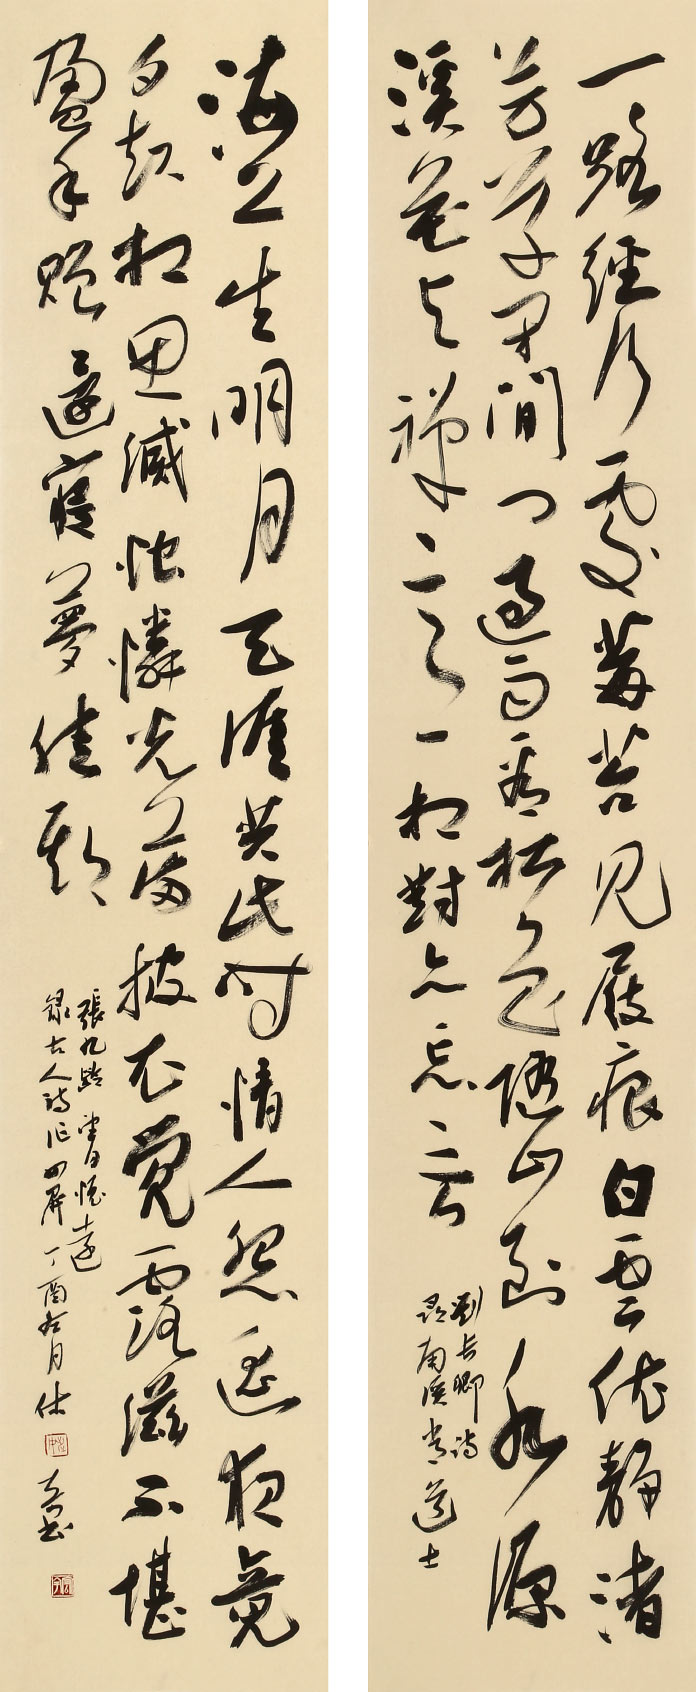 一路經行處莓苔見屐痕白雲依靜渚
芳草閉閒門過雨看松色隨山到水源
溪花与禪意相對亦忘言
劉長卿詩
尋南溪常道士
海上生明月天涯共此時情人怨遙夜竟
夕起相思滅燭憐光滿披衣覺露滋不堪
盈手贈還寢夢佳期
張九齡望月懷遠
錄古人詩作四屏丁酉冬月仕
書